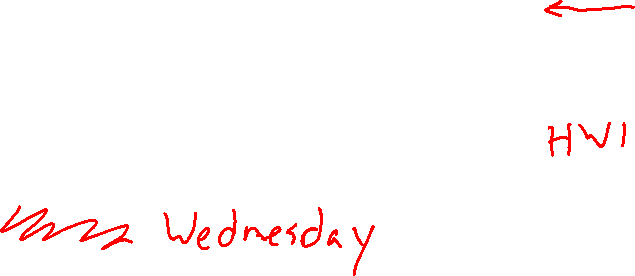 HW1
Wednesday